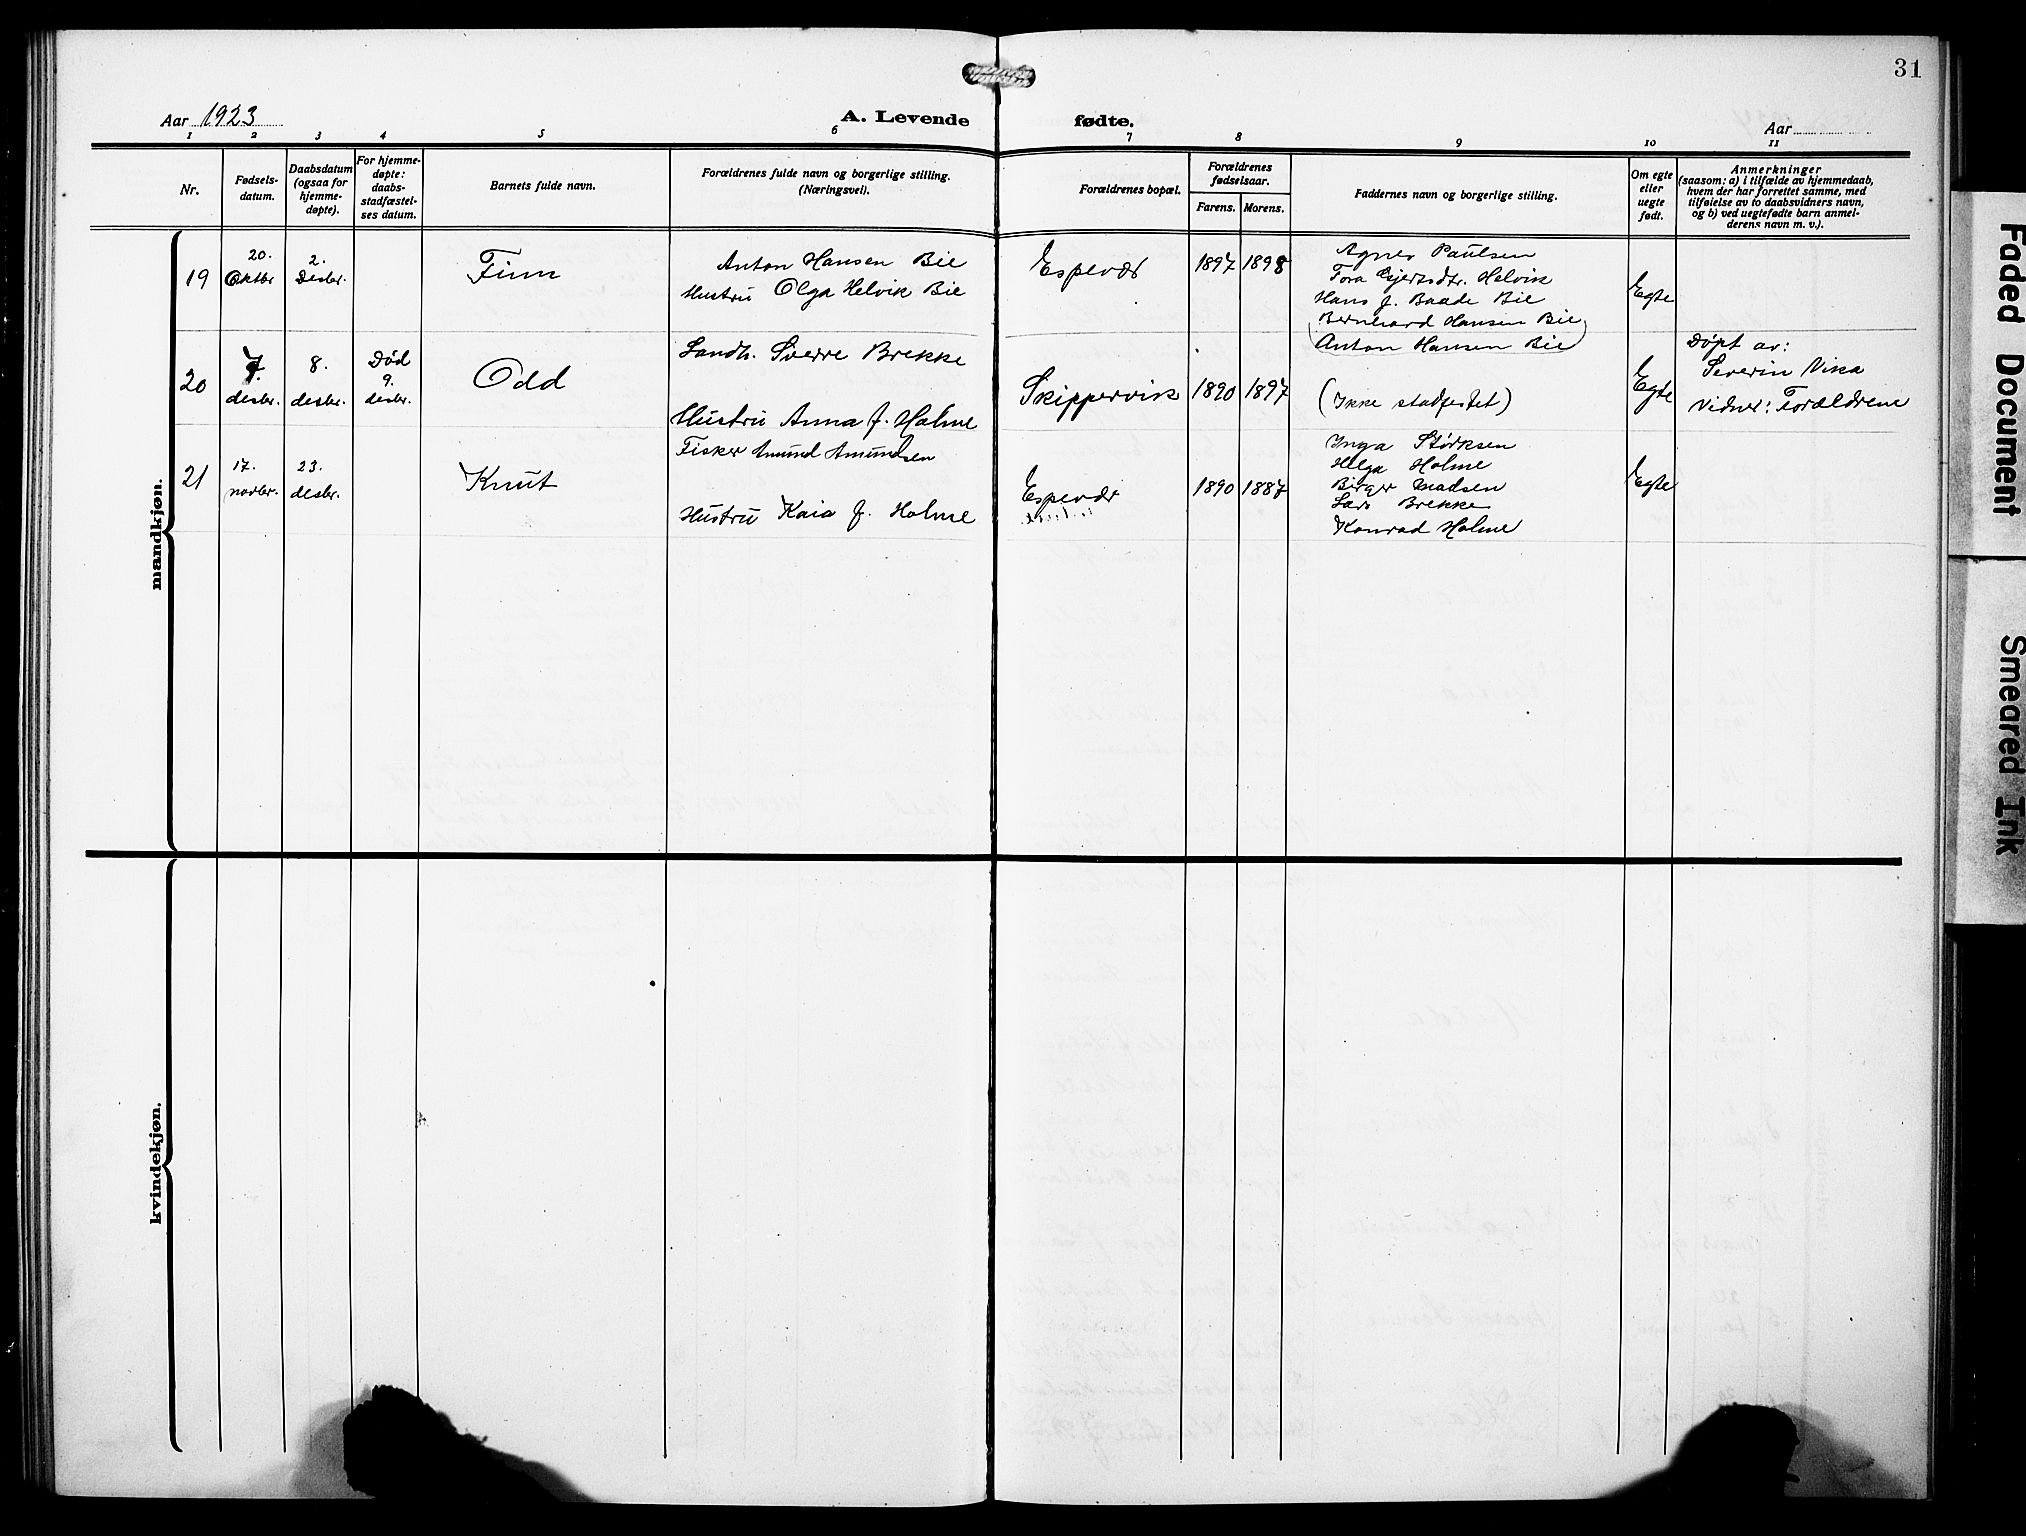 31
Aar 1923
A. Levende fødte.
Aar
1 2 3 4 5 6 7 8 9 10 11
Nr.
Fødsels-
datum.
Daabsdatum
(ogsaa for
hjemme-
døpte).
For hjemme-
døpte:
daabs-
stadfæstel-
ses datum.
Barnets fulde navn.
Forældrenes fulde navn og borgerlige stilling.
(Næringsvei).
Forældrenes bopæl.
Forældrenes
fødselsaar.
Farens. Morens.
Faddernes navn og borgerlige stilling.
Om egte
eller
uegte
født.
Anmerkninger
(saasom: a) i tilfælde av hjemmedaab,
hvem der har forrettet samme, med
tilføielse av to daabsvidners navn,
og b) ved uegtefødte barn anmel-
derens navn m. v.).
mandkjøn.
19
20.
Oktbr
2.
Desbr.
Finn
Anton Hansen Bie
Hustru Olga Helvik Bie
Espevær
1897 1898
Agnes Paulsen
Tora Gjertsdtr. Helvik
Hans J. Baade Bie
Bernhard Hansen Bie
Anton Hansen Bie
Egte
20
7.
desbr.
8.
desbr.
Død
9.
desbr.
Odd
Landh. Sverre Brekke
Hustru Anna f. Holme
Skippervik
1890 1897
(Ikke stadfestet)
Egte
Døpt av:
Severin Vika
Vidner: Forældrene
21
17.
novbr.
23.
desbr.
Knut
Fisker Amund Amundsen
Hustru Kaia f. Holme
Espevær
1890 1887
Inga Størksen
Helga Holme
Birger Madsen
Lars Brekke
Konrad Holme
Egte
kvindekjøn.
Faded Document
Smeared Ink